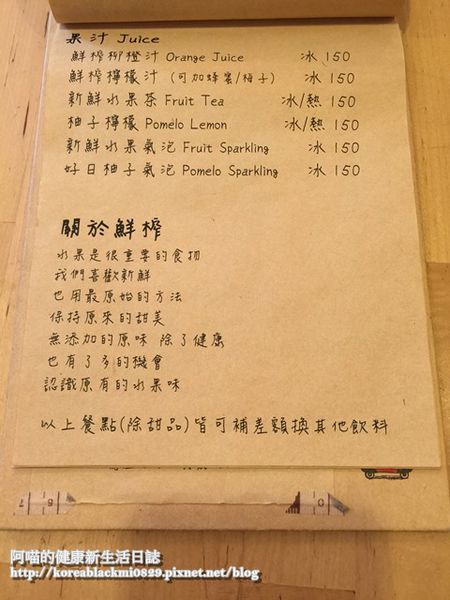 果汁 Juice
鮮榨柳橙汁 Orange Juice 冰 150
鮮榨檸檬汁 (可加蜂蜜/梅子) 冰 150
新鮮水果茶 Fruit Tea 冰/熱 150
柚子檸檬 Pomelo Lemon 冰/熱 150
新鮮水果氣泡 Fruit Sparkling 冰 150
好日柚子氣泡 Pomelo Sparkling 冰 150
關於鮮榨
水果是很重要的食物
我們喜歡新鮮
也用最原始的方法
保持原來的甜美
無添加的原味 除了健康
也有了多的機會
認識原有的水果味
以上餐點(除甜品)皆可補差額換其他飲料
阿喵的健康新生活日誌
http://koreablackmi0829.pixnet.net/blog